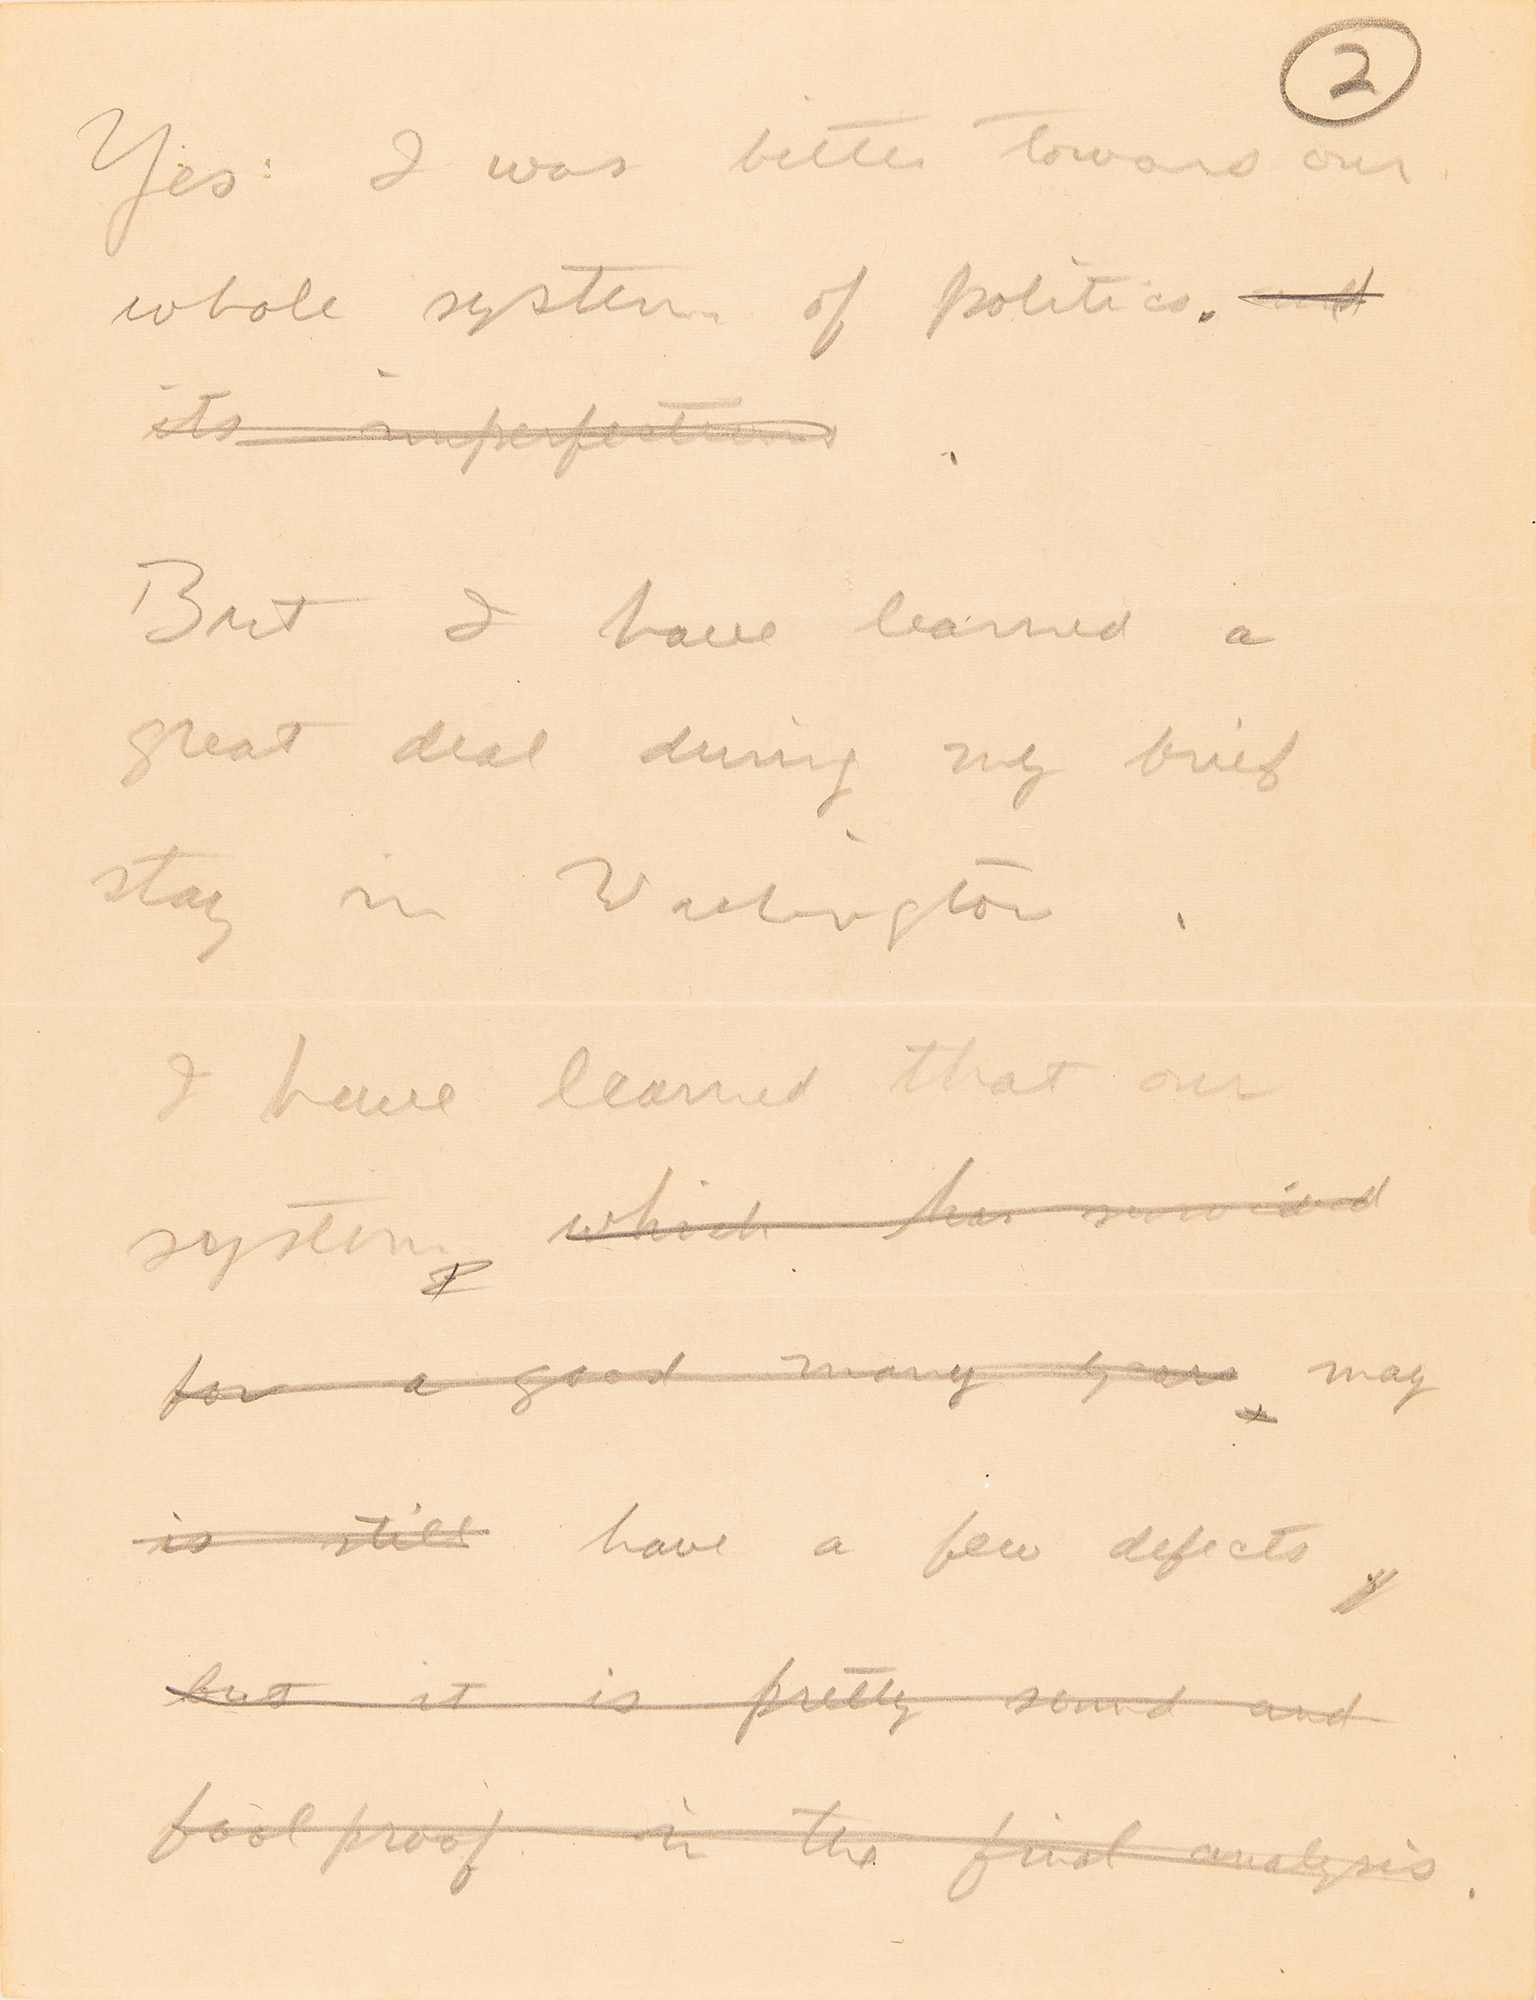 2
Yes: I was bitter toward our
whole system of politics. and
its imperfections .
But I have learned a
great deal during my brief
stay in Washington .
I have learned that our
system, which has survived
for a good many years, may
is still have a few defects,
but it is pretty sound and
foolproof in the final analysis.